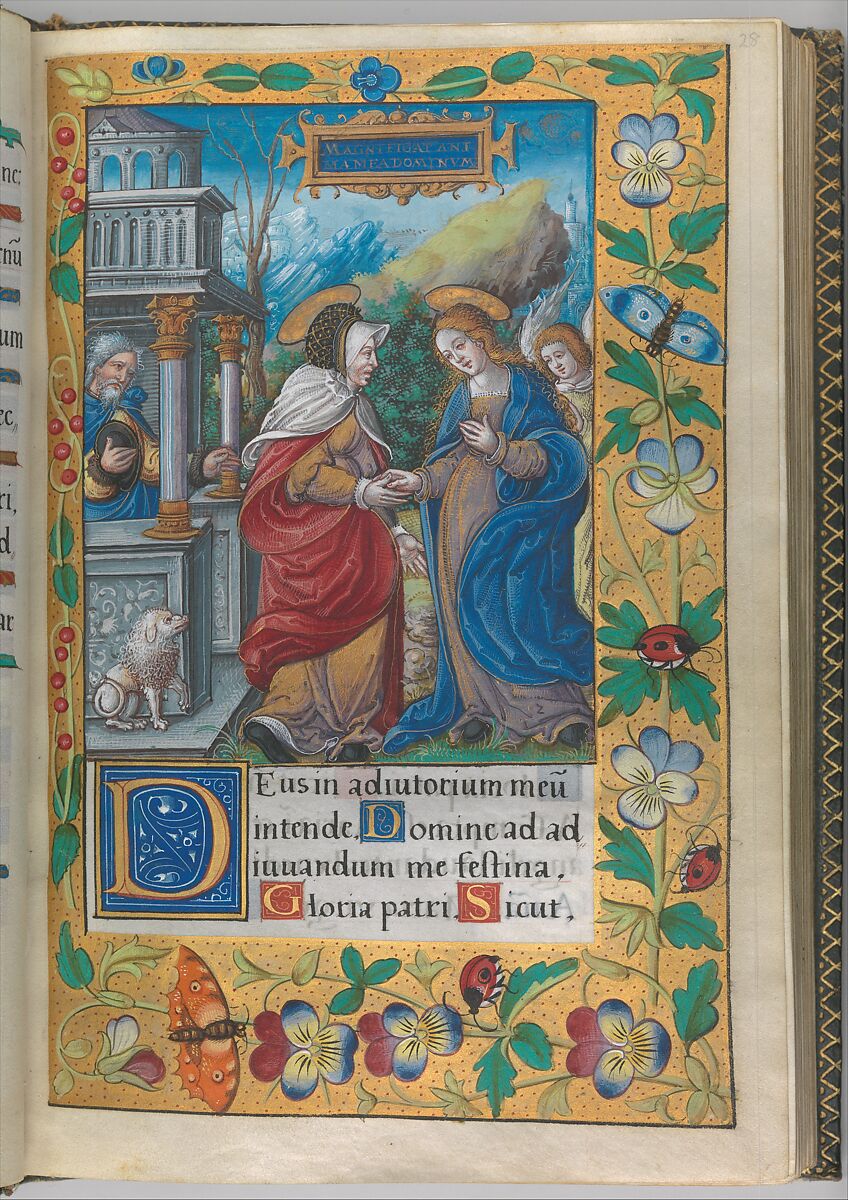 28
MAGNIFICAT ANI
MA MEA DOMINVM
DEus in adiutorium meū
intende, Domine ad ad
iuuandum me festina,
Gloria patri, Sicut,
nū
um
ec,
ri,
d
ar